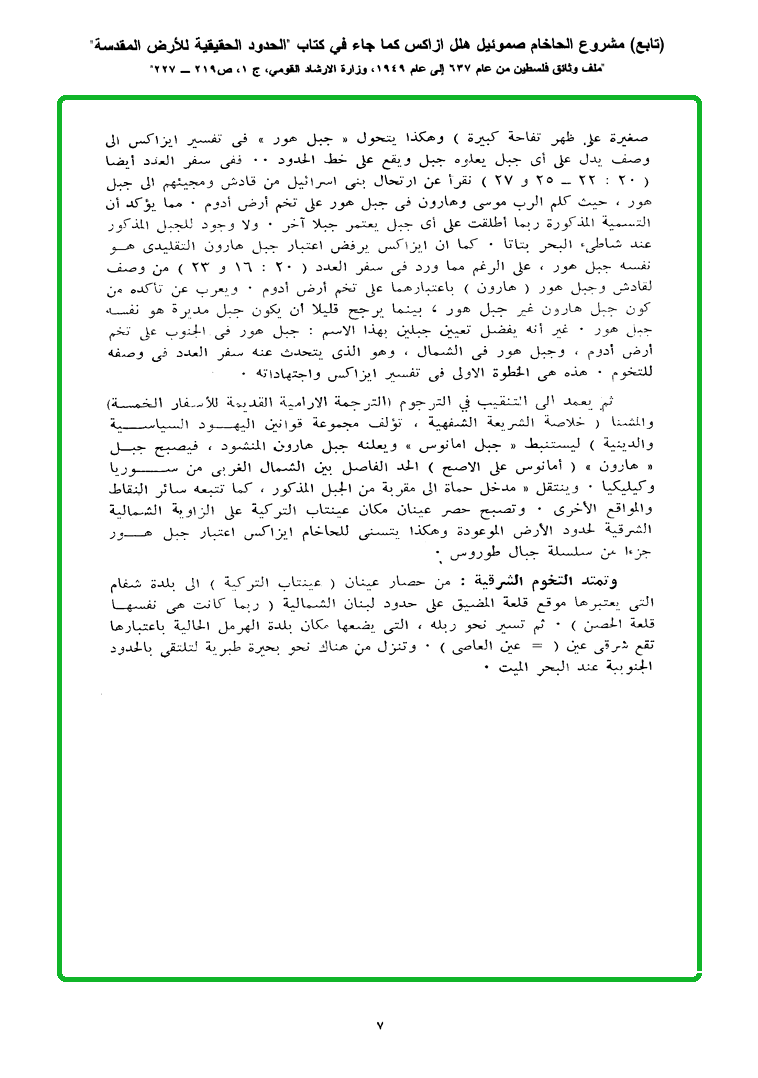 (تابع) مشروع الحاخام صموئيل هلل ازاكس كما جاء في كتاب "الحدود الحقيقية للأرض المقدسة"
"ملف وثائق فلسطين من عام ٦٣٧ إلى عام ١٩٤٩، وزارة الارشاد القومي، ج ١، ص٢١٩ ــ ٢٢٧"
صغيرة على ظهر تفاحة كبيرة ) وهكذا يتحول « جبل هور » فى تفسير ايزاكس الى
وصف يدل على أى جبل يعلوه جبل ويقع على خط الحدود ٠٠ ففى سفر العدد أيضا
( ٢٠ : ٢٢ ــ ٢٥ و ٢٧ ) نقرأ عن ارتحال بنى اسرائيل من قادش ومجيئهم الى جبل
هور ، حيث كلم الرب موسى وهارون فى جبل هور على تخم أرض أدوم ٠ مما يؤكد أن
التسمية المذكورة ربما أطلقت على أى جبل يعتمر جبلا آخر ٠ ولا وجود للجبل المذكور
عند شاطىء البحر بتاتا ٠ كما ان ايزاكس يرفض اعتبار جبل هارون التقليدى هــو
نفسه جبل هور ، على الرغم مما ورد فى سفر العدد ( ٢٠ : ١٦ و ٢٣ ) من وصف
لقادش وجبل هور ( هارون ) باعتبارهما على تخم أرض أدوم ٠ ويعرب عن تاكده من
كون جبل هارون غير جبل هور ، بينما يرجح قليلا أن يكون جبل مديرة هو نفسه
جبل هور ٠ غير أنه يفضل تعيين جبلين بهذا الاسم : جبل هور فى الجنوب على تخم
أرض أدوم ، وجبل هور فى الشمال ، وهو الذى يتحدث عنه سفر العدد فى وصفه
للتخوم ٠ هذه هى الخطوة الاولى فى تفسير ايزاكس واجتهاداته ٠
ثم يعمد الى التنقيب في الترجوم (الترجمة الارامية القديمة للأسفار الخمسة)
والمشنا ( خلاصة الشريعة الشفهية ، تؤلف مجموعة قوانين اليهـود السياســـية
والدينية ) ليستنبط « جبل امانوس » ويعلنه جبل هارون المنشود ، فيصبح جبــل
« هارون » ( أمانوس على الاصح ) الحد الفاصل بين الشمال الغربى من ســــوريا
وكيليكيا ٠ وينتقل « مدخل حماة الى مقربة من الجبل المذكور ، كما تتبعه سائر النقاط
والمواقع الأخرى ٠ وتصبح حصر عينان مكان عينتاب التركية على الزاوية الشمالية
الشرقية لحدود الأرض الموعودة وهكذا يتسنى للحاخام ايزاكس اعتبار جبل هـــور
جزءا من سلسلة جبال طوروس ٠
وتمتد التخوم الشرقية : من حصار عينان ( عينتاب التركية ) الى بلدة شفام
التى يعتبرها موقع قلعة المضيق على حدود لبنان الشمالية ( ربما كانت هى نفسهـا
قلعة الحصن ) ٠ ثم تسير نحو ربله ، التى يضعها مكان بلدة الهرمل الحالية باعتبارها
تقع شرقى عين ( = عين العاصى ) ٠ وتنزل من هناك نحو بحيرة طبرية لتلتقي بالحدود
الجنوبية عند البحر الميت ٠
٧